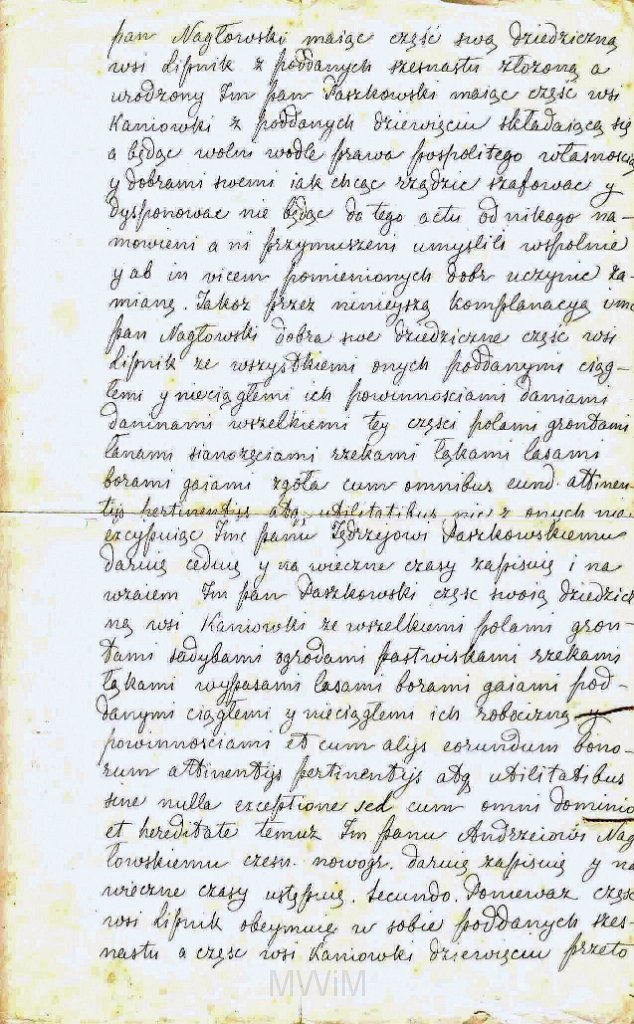 pan Nagłowski maiąc część swą dziedziczną
wsi Lipnik z poddanych szesnastu złożoną a
urodzony Im pan Paszkowski maiąc częśc wsi
Kaniowski z poddanych dziewięciu składaiącą się
a będąc wolni wodle prawa pospolitego własnością
y dobrami swemi iak chcąc rządzic szafowac y
dysponowac nie będąc do tego actu od nikogo na-
mowieni a ni przymuszeni umyslili wspolnie
y ab in vicem pomienionych dobr uczynic za-
mianę. Jakoz przez ninieyszą komplanacyą imc
pan Nagłowski dobra swe dziedziczne część wsi
Lipnik ze wszystkiemi onych poddanymi ciąg-
łemi y nieciągłemi ich powinnosciami daniami
daninami wszelkiemi tey części polami grontami
łanami sianożęciami rzekami łąkami lasami
borami gaiami zgoła cum omnibus eund. attinen-
tijs pertinentijs atq. utilitatibus nic z onych nie
excypuiąc Imc panu Jędrzejowi Paszkowskiemu
daruię ceduię y na wieczne czasy zapisuię i na
wzaiem Im pan Paszkowski częsc swoią dziedzicz
ną wsi Kaniowski ze wszelkiemi polami gron-
tami sadybami ogrodami pastwiskami rzekami
łąkami wypasami lasami borami gaiami pod-
danymi ciągłemi y nieciągłemi ich robocizną y
powinnosciami et cum alijs eorundum bono-
rum attinentijs pertinentijs atq. utilitatibus
sine nulla exceptione sed cum omni dominio
et hereditate temuz Im panu Andrzeiowi Nag
łowskiemu czesn. nowogr. daruię zapisuię y na
wieczne czasy ustępuię. Secundo. Poniewaz częsc
wsi Lipnik obeymuię w sobie poddanych szes-
nastu a częsc wsi Kaniowski dziewięciu przeto
MWiM